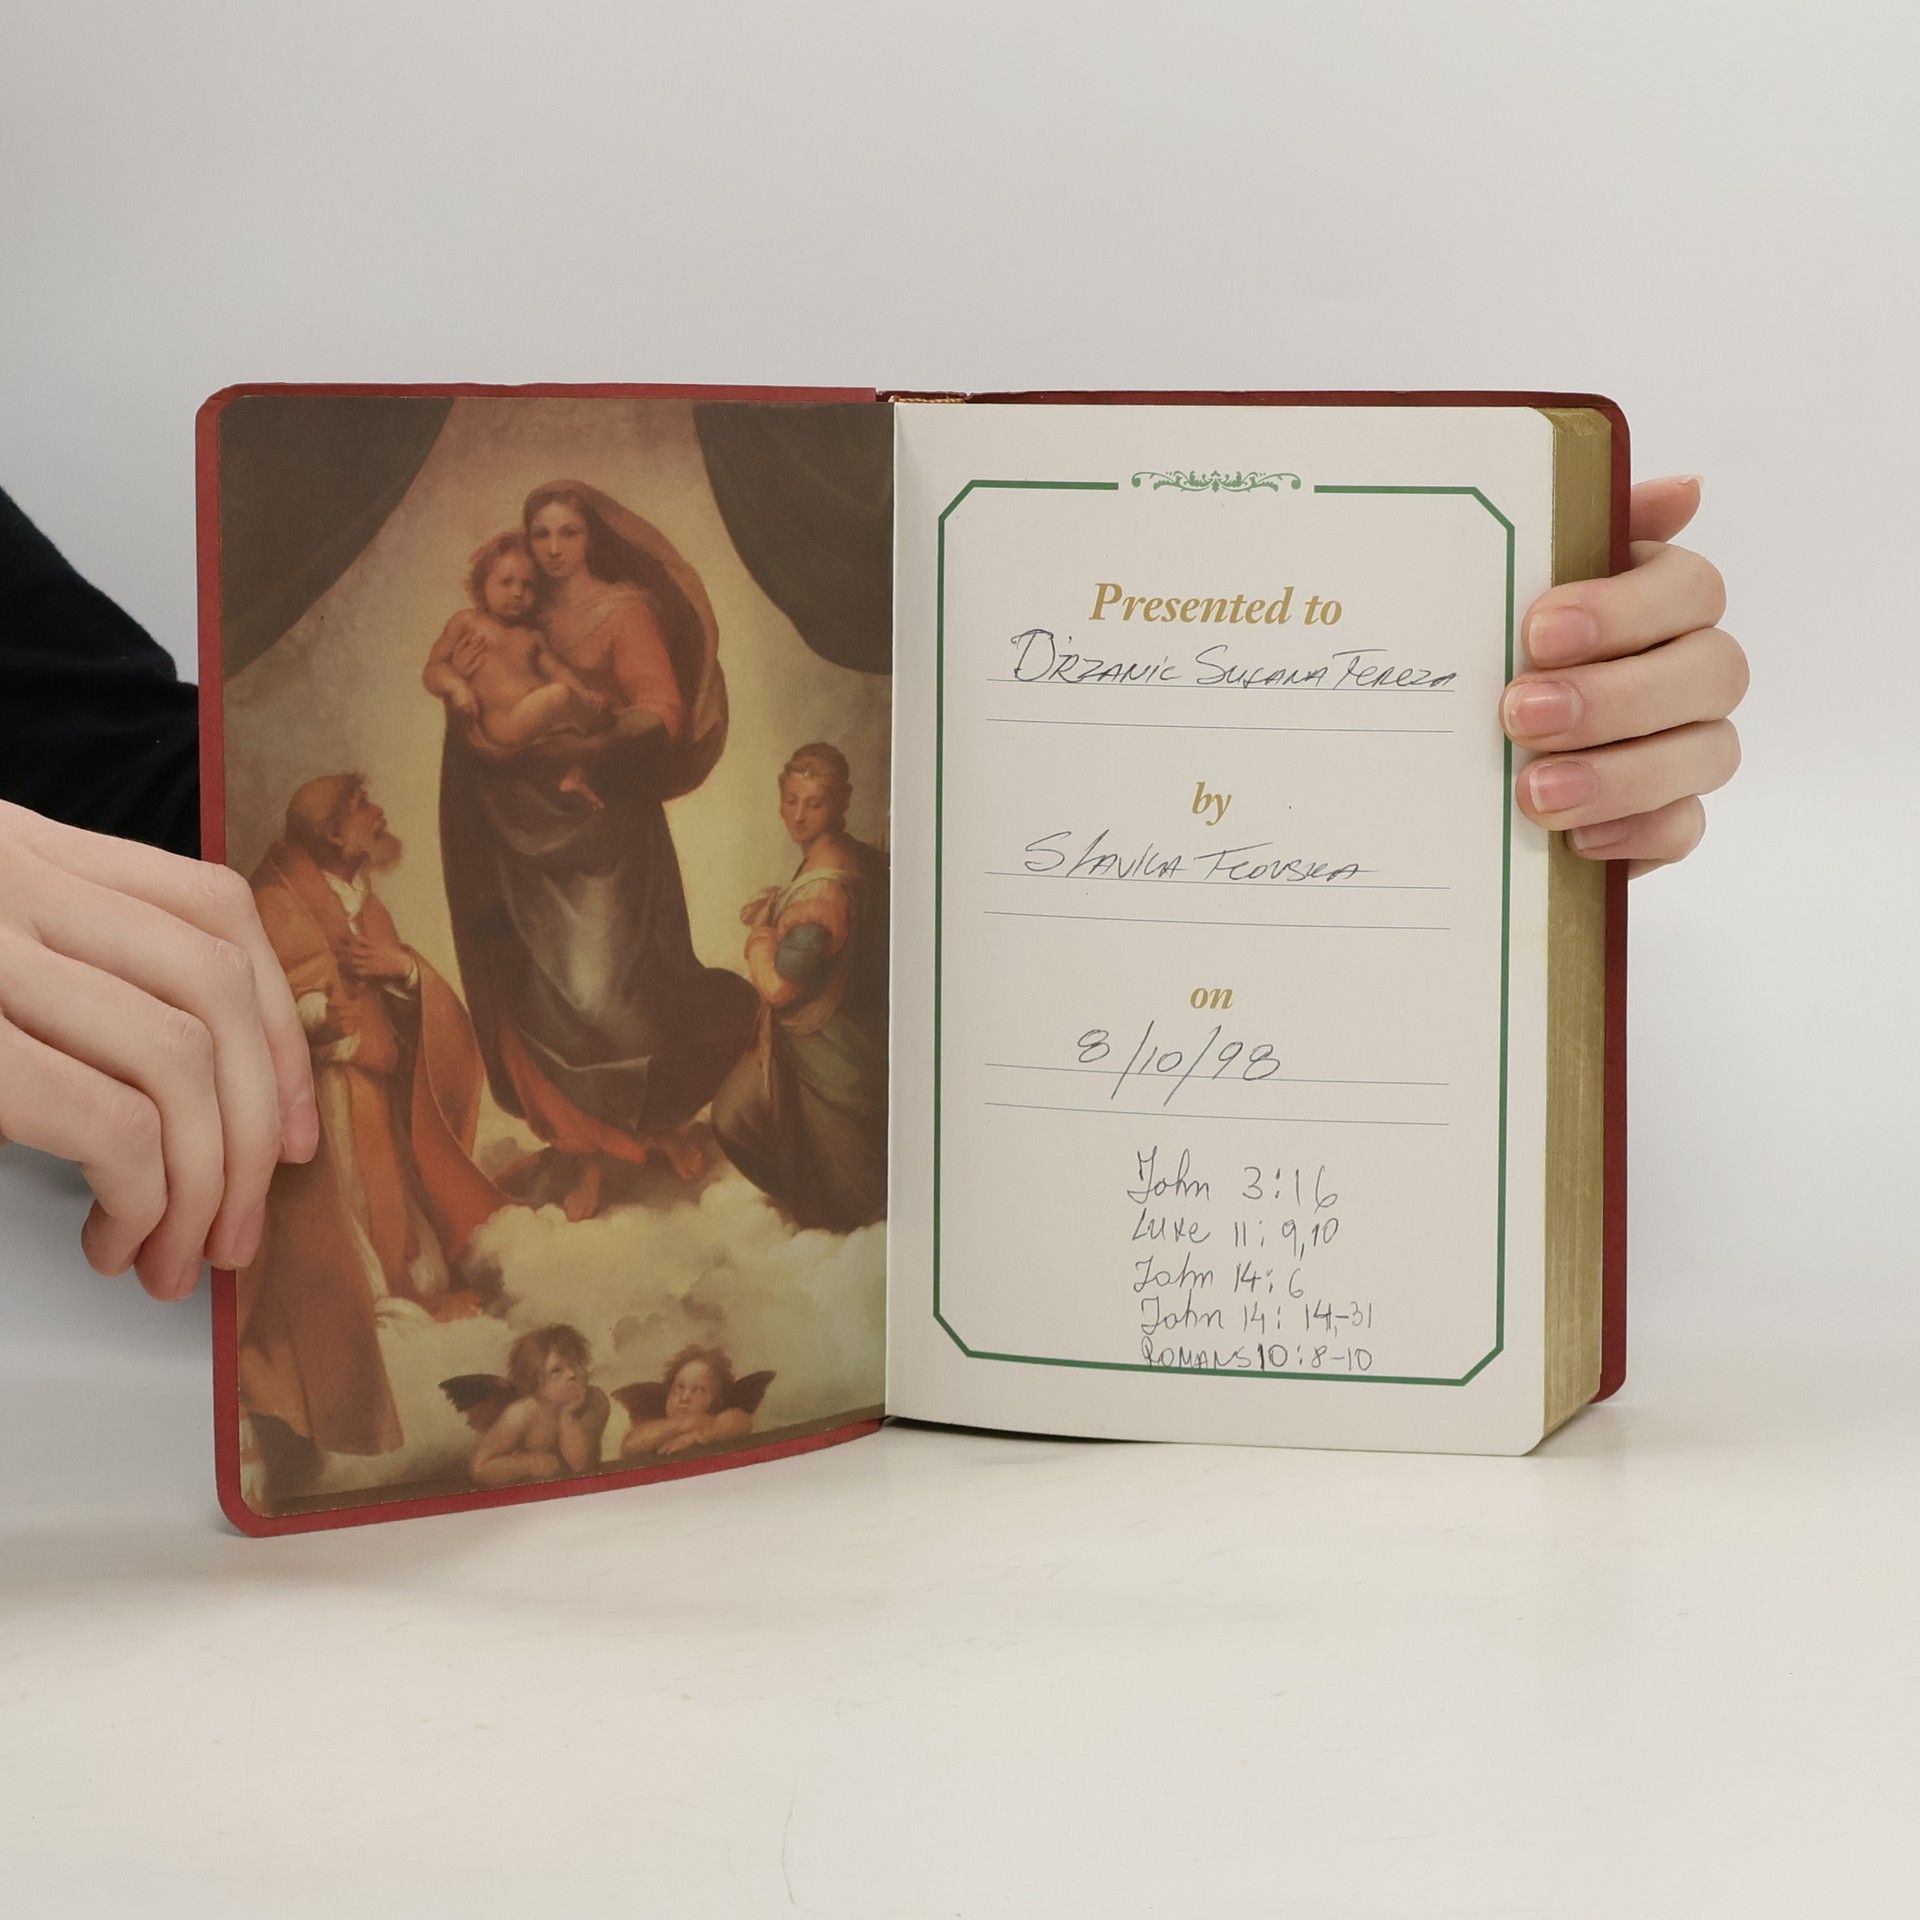 Presented to
Drzanic Susana Tereza
by
Slavica
on
8/10/98
John 3:16
Luke 11: 9,10
John 14: 6
John 14: 14-31
Romans 10:8-10